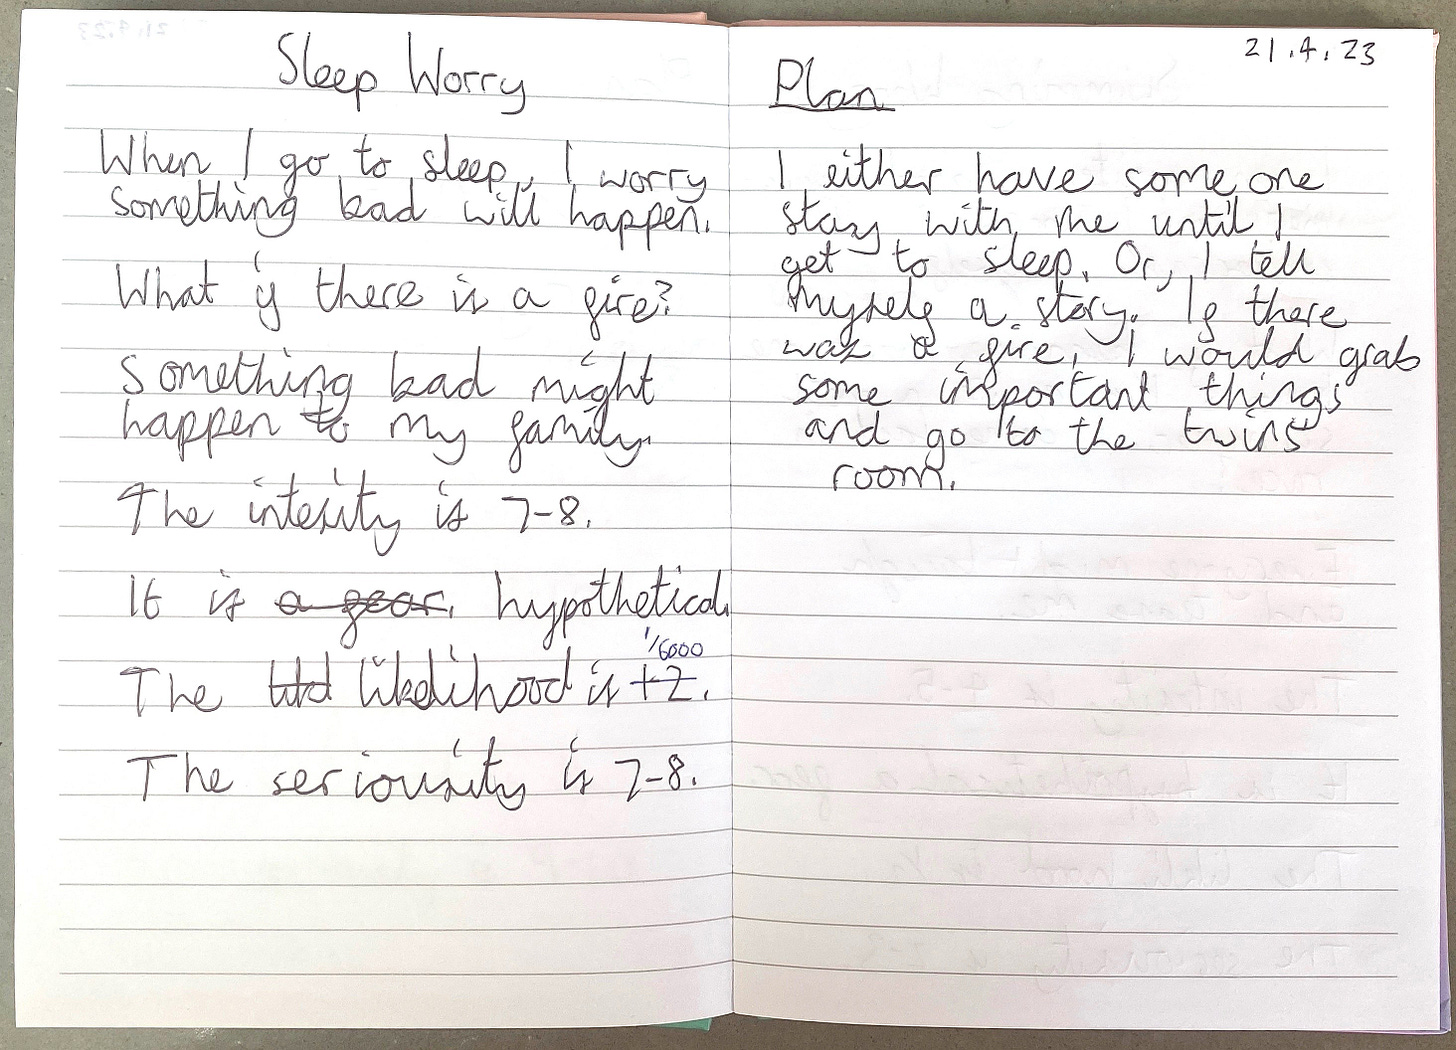 Sleep Worry
When I go to sleep, I worry
something bad will happen.
What if there is a fire?
Something bad might
happen to my family.
The intesity is 7-8.
It is a fear. hypothetical.
1/6000
The likelihood is +2.
The seriousity is 7-8.
21.4.23
Plan
I either have some one
stay with me until I
get to sleep. Or, I tell
myself a story. If there
was a fire, I would grab
some important things
and go to the twins'
room.